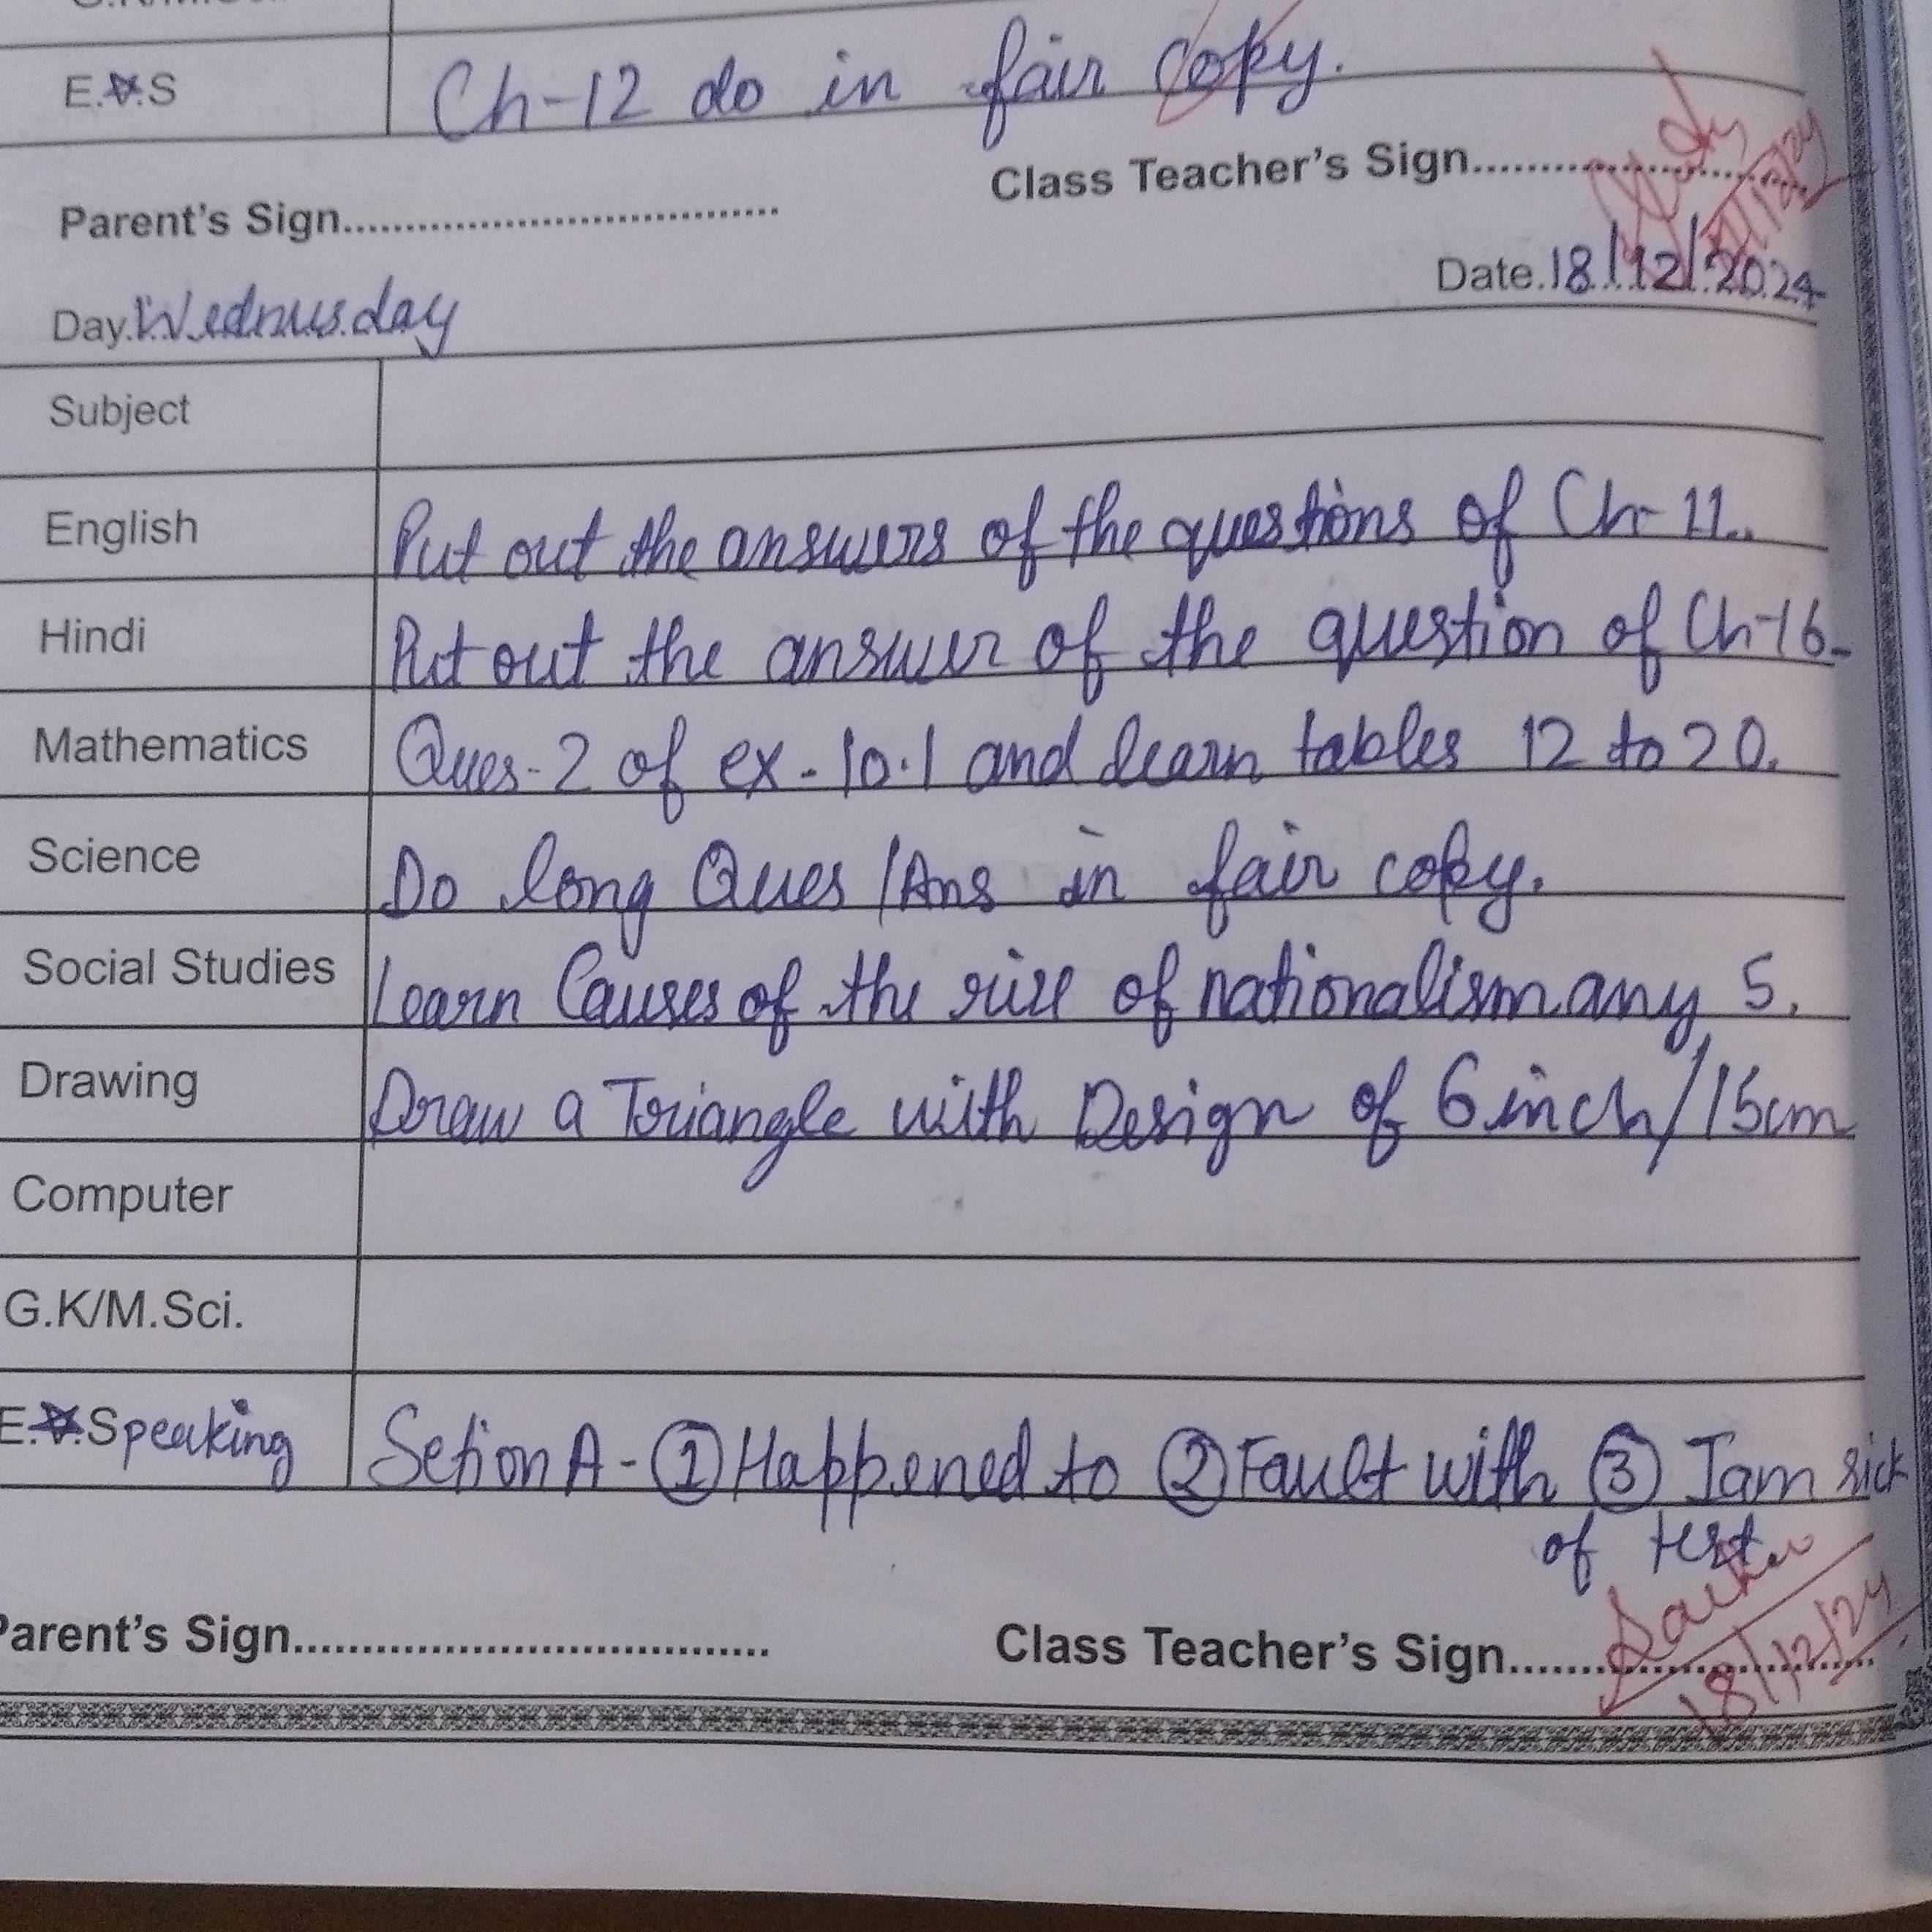 E.V.S Ch-12 do in fair copy.
Class Teacher's Sign..............................
Parent's Sign...................................
Date.18/12/2024
Day.Wednusday
Subject
English Put out the answers of the questions of Ch-11.
Hindi Put out the answer of the question of Ch-16.
Mathematics Ques-2 of ex-10.1 and learn tables 12 to 20.
Science Do long Ques/Ans in fair copy.
Social Studies Learn Causes of the rise of nationalism any 5.
Drawing Draw a Triangle with Design of 6 inch/15cm
Computer
G.K/M.Sci.
E.V.Speaking Setion A- ① Happened to ② Fault with ③ I am sick
of test
Parent's Sign...................................
Class Teacher's Sign..............................
18/12/24